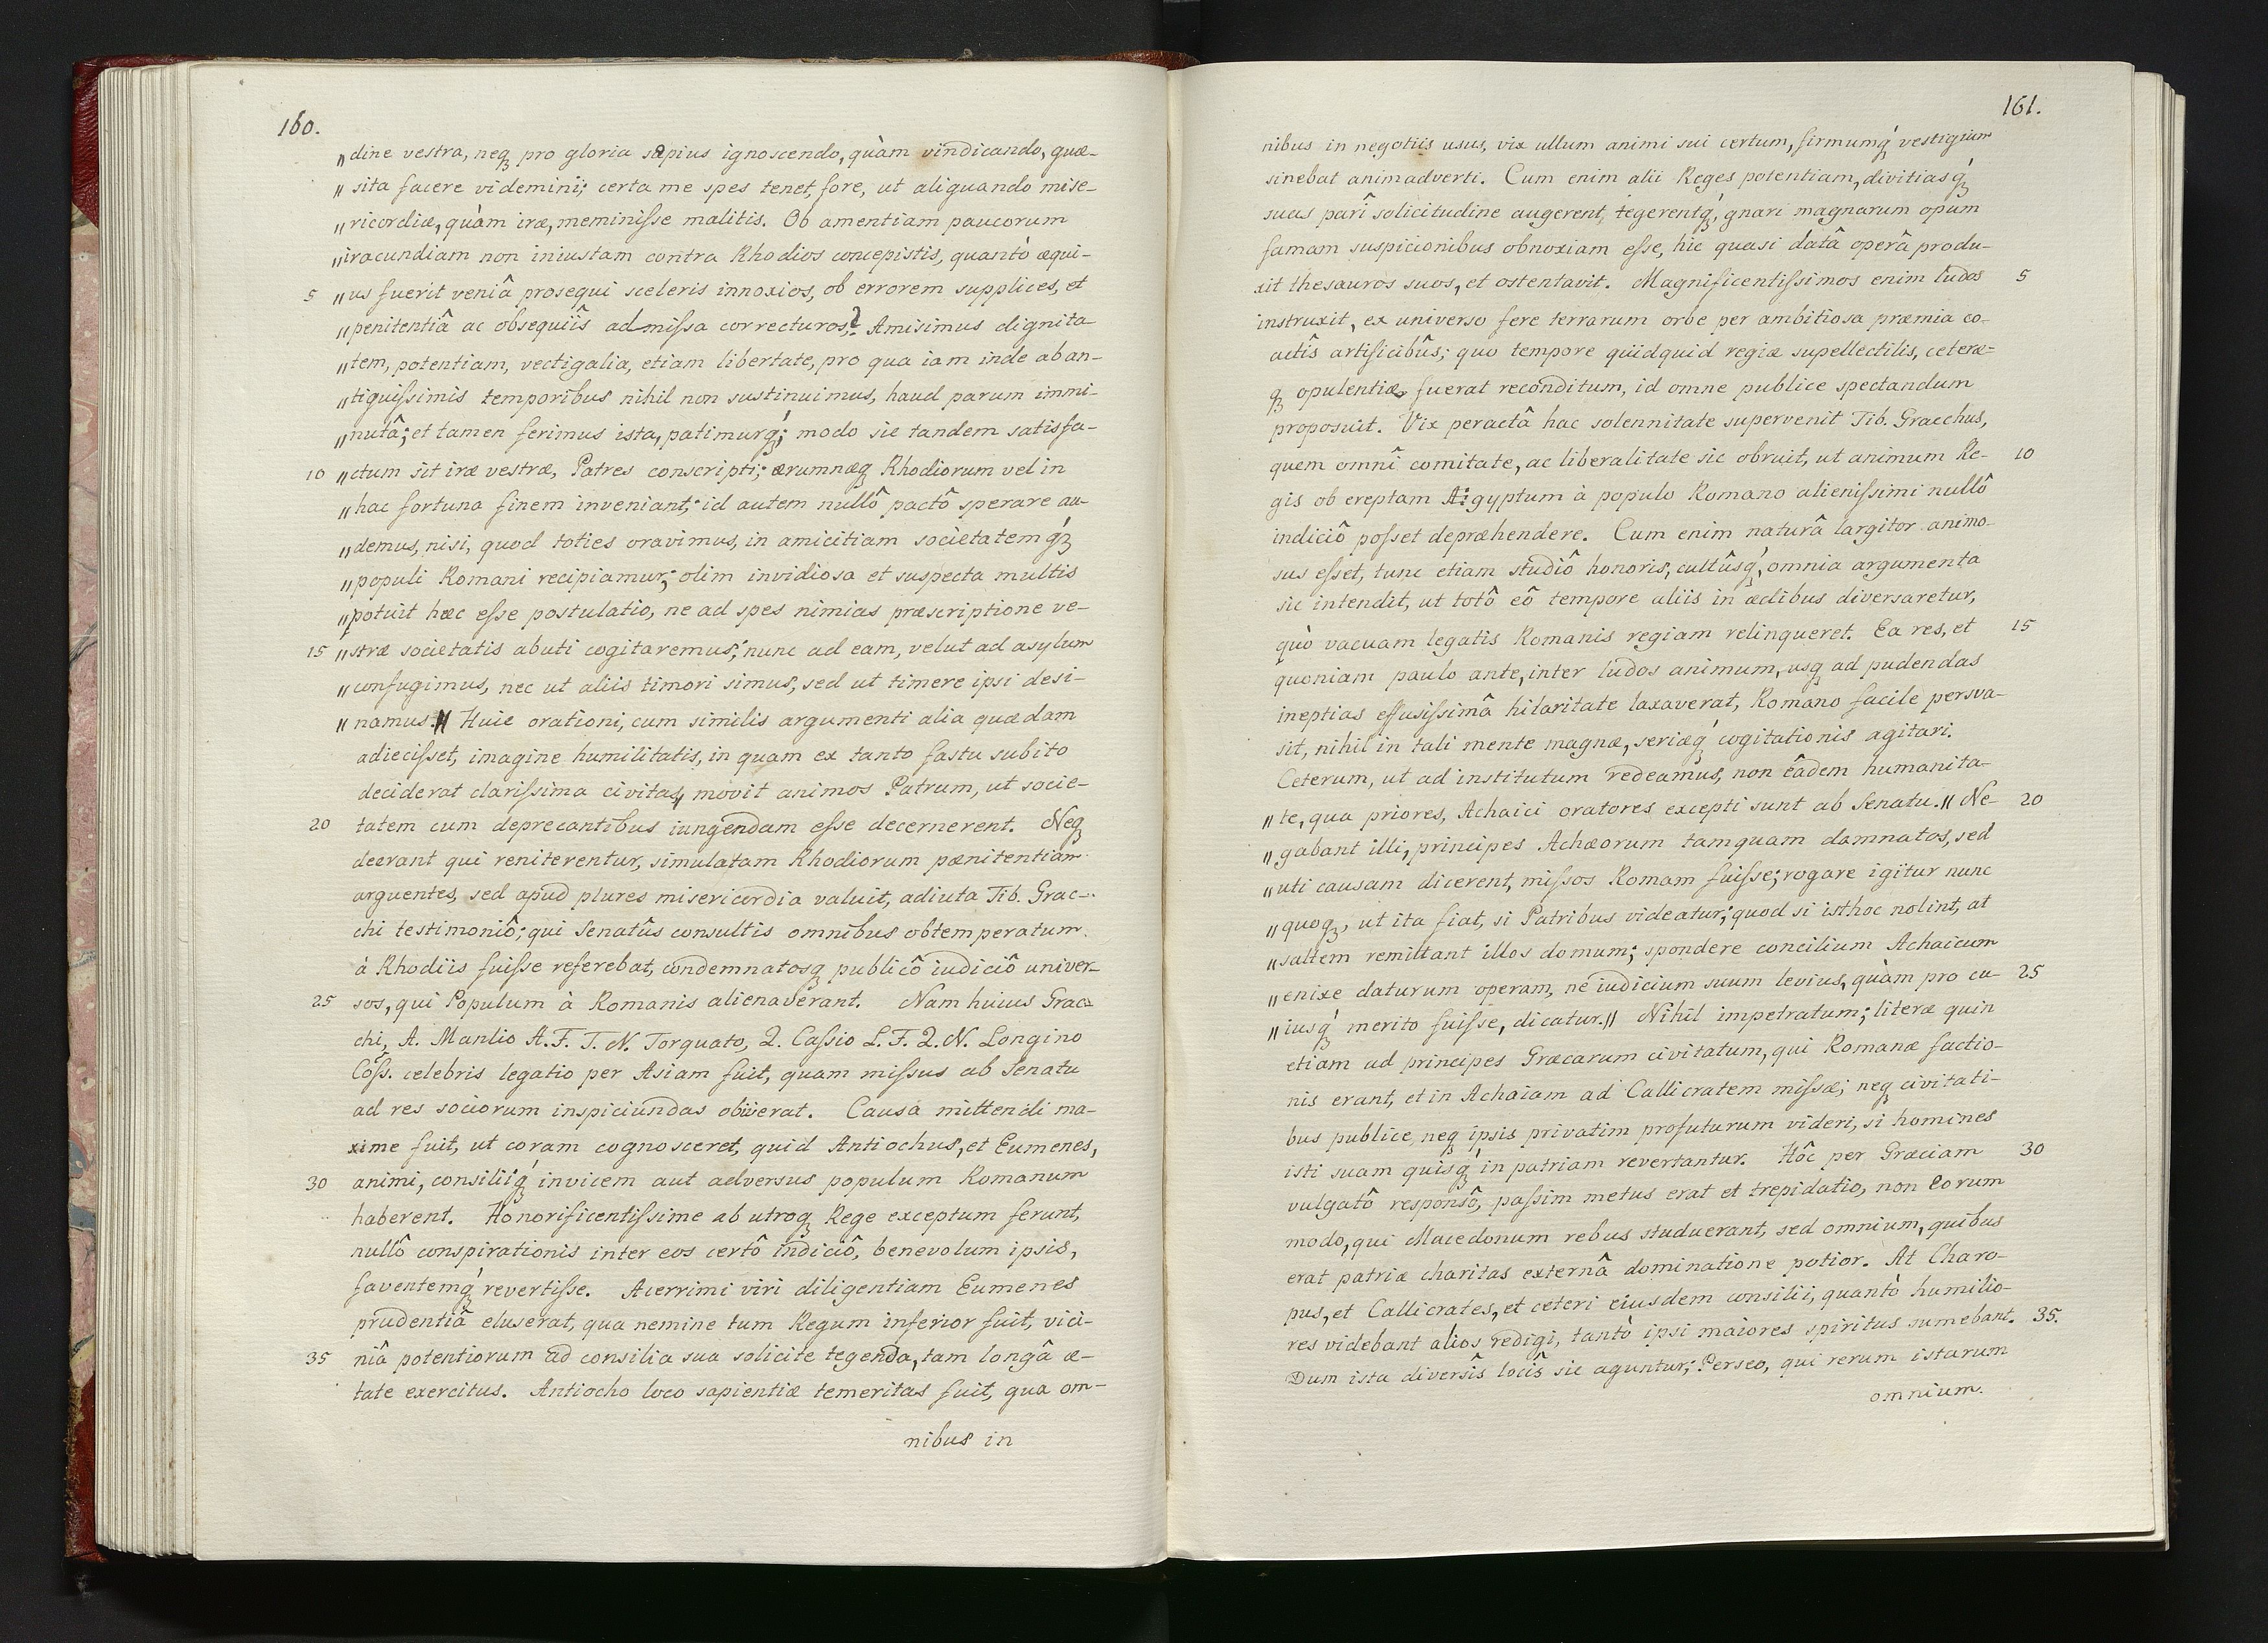 160.
„dine vestra, neqꝫ pro gloria sæpius ignoscendo, quàm vindicando, quæ-
„sita facere videmini; certa me spes tenet, fore, ut aliquando mise-
„ricordiæ, quàm iræ, meminiſse malitis. Ob amentiam paucorum
„iracundiam non iniustam contra Rhodios concepistis, quantò æqui-
5 „us fuerit veniâ prosequi sceleris innoxios, ob errorem supplices, et
„penitentiâ ac obsequiîs admiſsa correcturos? Amisimus dignita
„tem, potentiam, vectigalia, etiam libertate, pro qua iam inde ab an-
„tiquiſsimis temporibus nihil non sustinuimus, haud parum immi-
„nutâ; et tamen ferimus ista, patimurqꝫ́; modo sic tandem satisfa-
10 „ctum sit iræ vestræ, Patres conscripti; ærumnæqꝫ Rhodiorum vel in
„hac fortuna finem inveniant; id autem nullô pactô sperare au-
„demus, nisi, quod toties oravimus, in amicitiam societatemqꝫ́
„populi Romani recipiamur; olim invidiosa et suspecta multis
„potuit hæc eſse postulatio, ne ad spes nimias præscriptione ve-
15 „stræ societatis abuti cogitaremus; nunc ad eam, velut ad asylum
„confugimus, nec ut aliis timori simus, sed ut timere ipsi desi-
„namus.„ Huic orationi, cum similis argumenti alia quædam
adieciſset, imagine humilitatis, in quam ex tanto fastu subito
deciderat clariſsima civitas, movit animos Patrum, ut socie-
20 tatem cum deprecantibus iungendam eſse decernerent. Neqꝫ
deerant qui reniterentur, simulatam Rhodiorum pænitentiam
arguentes, sed apud plures misericordia valuit, adiuta Tib. Grac-
chi testimoniô; qui Senatûs consultis omnibus obtemperatum
à Rhodiis fuiſse referebat, condemnatosqꝫ publicô iudiciô univer-
25 sos, qui Populum à Romanis alienaverant. Nam huius Grac=
chi, A. Manlio A. F. T. N. Torquato, Q. Caſsio L. F. Q. N. Longino
Coſs. celebris legatio per Asiam fuit, quam miſsus ab Senatu
ad res sociorum inspiciundas obiierat. Causa mittendi ma-
xime fuit, ut coram cognosceret, quid Antiochus, et Eumenes,
30 animi, consiliiqꝫ́ invicem aut adversus populum Romanum
haberent. Honorificentiſsime ab utroqꝫ Rege exceptum ferunt,
nullô conspirationis inter eos certô indiciô, benevolum ipsis,
faventemqꝫ́ revertiſse. Acerrimi viri diligentiam Eumenes
prudentiâ eluserat, qua nemine tum Regum inferior fuit, vici-
35 niâ potentiorum ad consilia sua solicite tegenda, tam longâ æ-
tate exercitus. Antiocho loco sapientiæ temeritas fuit, qua om-
nibus in
161.
nibus in negotiis usus, vix ullum animi sui certum, firmumqꝫ́ vestigium
sinebat animadverti. Cum enim alii Reges potentiam, divitiasqꝫ́
suas parî solicitudine augerent, tegerentqꝫ́, gnari magnarum opum
famam suspicionibus obnoxiam eſse, hic quasi datâ operâ produ-
xit thesauros suos, et ostentavit. Magnificentiſsimos enim ludos 5
instruxit, ex universo fere terrarum orbe per ambitiosa præmia co-
actîs artificibûs; quo tempore quidquid regiæ supellectilis, ceteræ=
qꝫ opulentiæ fuerat reconditum, id omne publice spectandum
proposuit. Vix peractâ hac solennitate supervenit Tib. Gracchus,
quem omnî comitate, ac liberalitate sic obruit, ut animum Re- 10
gis ob ereptam Aigyptum à populo Romano alieniſsimi nullô
indiciô poſset depræhendere. Cum enim naturâ largitor animo-
sus eſset, tunc etiam studiô honoris, cultûsqꝫ́, omnia argumenta
sic intendit, ut totô eô tempore aliis in ædibus diversaretur,
quò vacuam legatis Romanis regiam relinqueret. Ea res, et 15
quoniam paulo ante, inter ludos animum, usqꝫ ad pudendas
ineptias effusiſsimâ hilaritate laxaverat, Romano facile persva-
sit, nihil in tali mente magnæ, seriæqꝫ́ cogitationis agitari.
Ceterum, ut ad institutum redeamus, non eâdem humanita-
„te, qua priores, Achaici oratores excepti sunt ab Senatu. „ Ne- 20
„gabant illi, principes Achæorum tamquam damnatos, sed
„uti causam dicerent, miſsos Romam fuiſse; rogare igitur nunc
„quoqꝫ, ut ita fiat, si Patribus videatur; quod si isthoc nolint, at
„saltem remittant illos domum; spondere concilium Achaicum
„enixe daturum operam, ne iudicium suum levius, quàm pro cu- 25
„iusqꝫ́ merito fuiſse, dicatur.„ Nihil impetratum; literæ quin
etiam ad principes Græcarum civitatum, qui Romanæ factio-
nis erant, et in Achaiam ad Callicratem miſsæ; neqꝫ civitati-
bus publice, neqꝫ ipsis privatim profuturum videri, si homines
isti suam quisqꝫ́ in patriam revertantur. Hôc per Græciam 30
vulgatô responsô, paſsim metus erat et trepidatio, non eorum
modo, qui Macedonum rebus studuerant, sed omnium, quibus
erat patriæ charitas externâ dominatione potior. At Charo-
pus, et Callicrates, et ceteri eiusdem consilii, quantò humilio-
res videbant alios redigi, tantò ipsi maiores spiritus sumebant. 35.
Dum ista diversîs locîs sic aguntur; Perseo, qui rerum istarum
omnium.